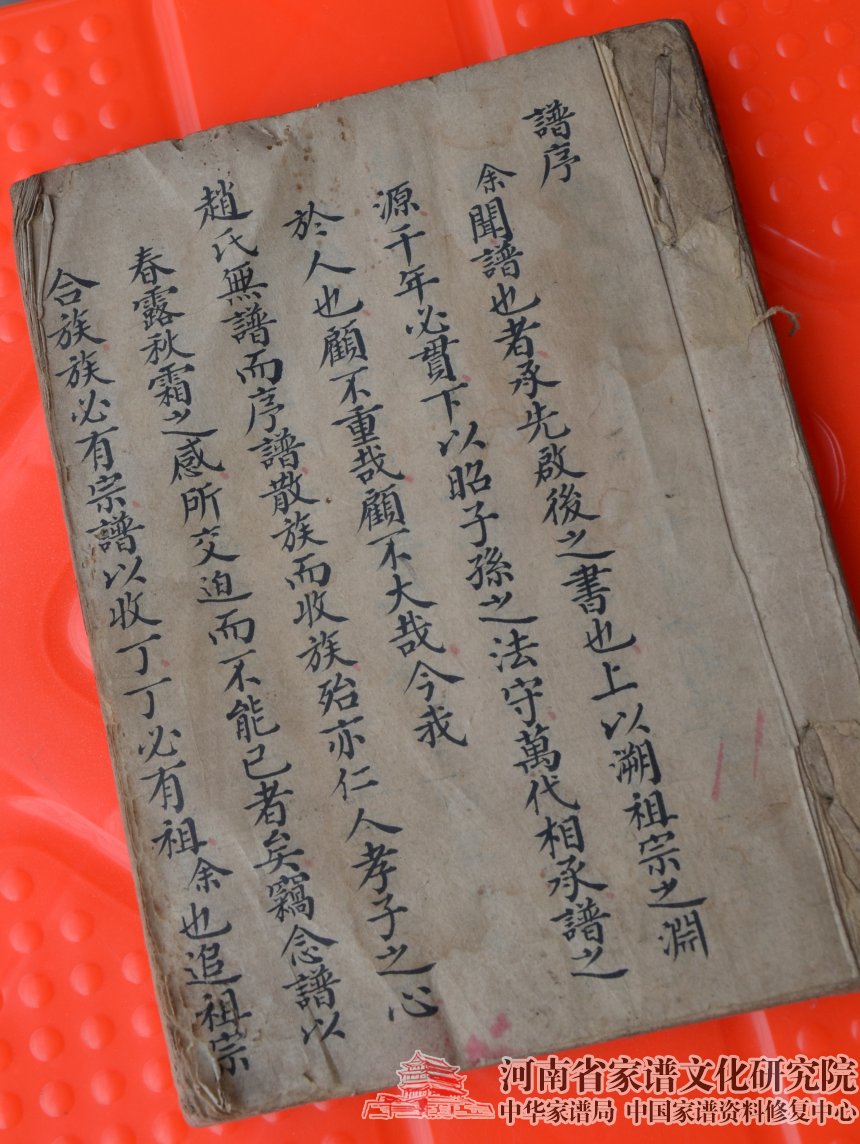 譜序
余聞譜也者承先啟後之書也上以溯祖宗之淵
源千年必貫下以昭子孫之法守萬代相承譜之
於人也顧不重哉顧不大哉今我
趙氏無譜而序譜散族而收族殆亦仁人孝子之心
春露秋霜之感所交迫而不能已者矣竊念譜以
合族族必有宗譜以收丁丁必有祖余也追祖宗
河南省家谱文化研究院
中华家谱局 中国家谱资料修复中心